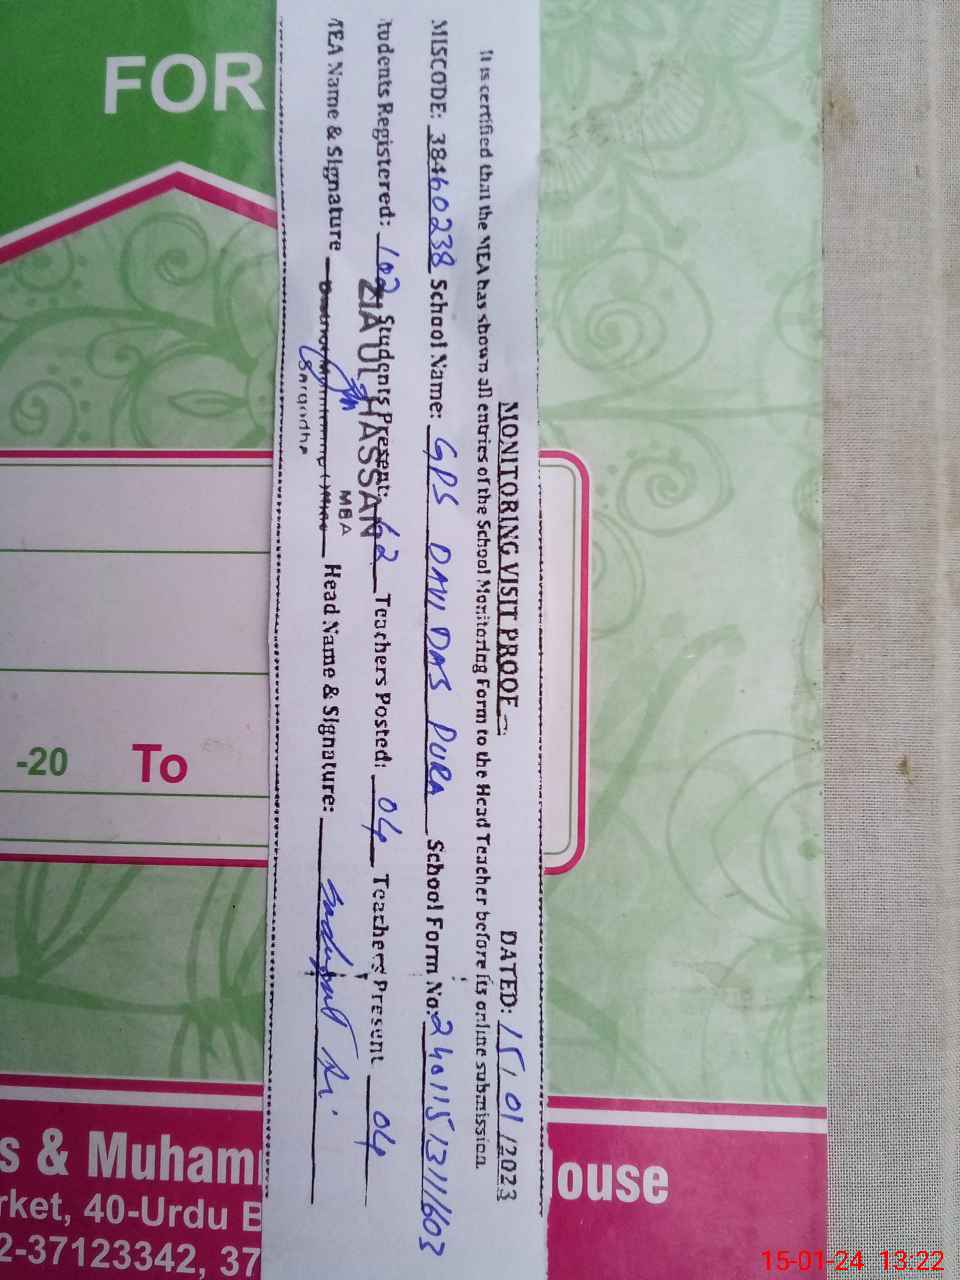 FOR
-20 To
s & Muham
ouse
rket, 40-Urdu B
2-37123342, 37
MONITORING VISIT PROOF :-
DATED: 15/01/2023
It is certified that the MEA has shown all entries of the School Monitoring Form to the Head Teacher before its online submission.
MISCODE: 38460238 School Name: GPS DAVI DAS PURA School Form No: 2401151311603
tudents Registered: 102 Students Present: 62 Teachers Posted: 04 Teachers Present 04
ZIA UL HASSAN
MEA
MEA Name & Signature Head Name & Signature:
Sargodha
15-01-24 13:22